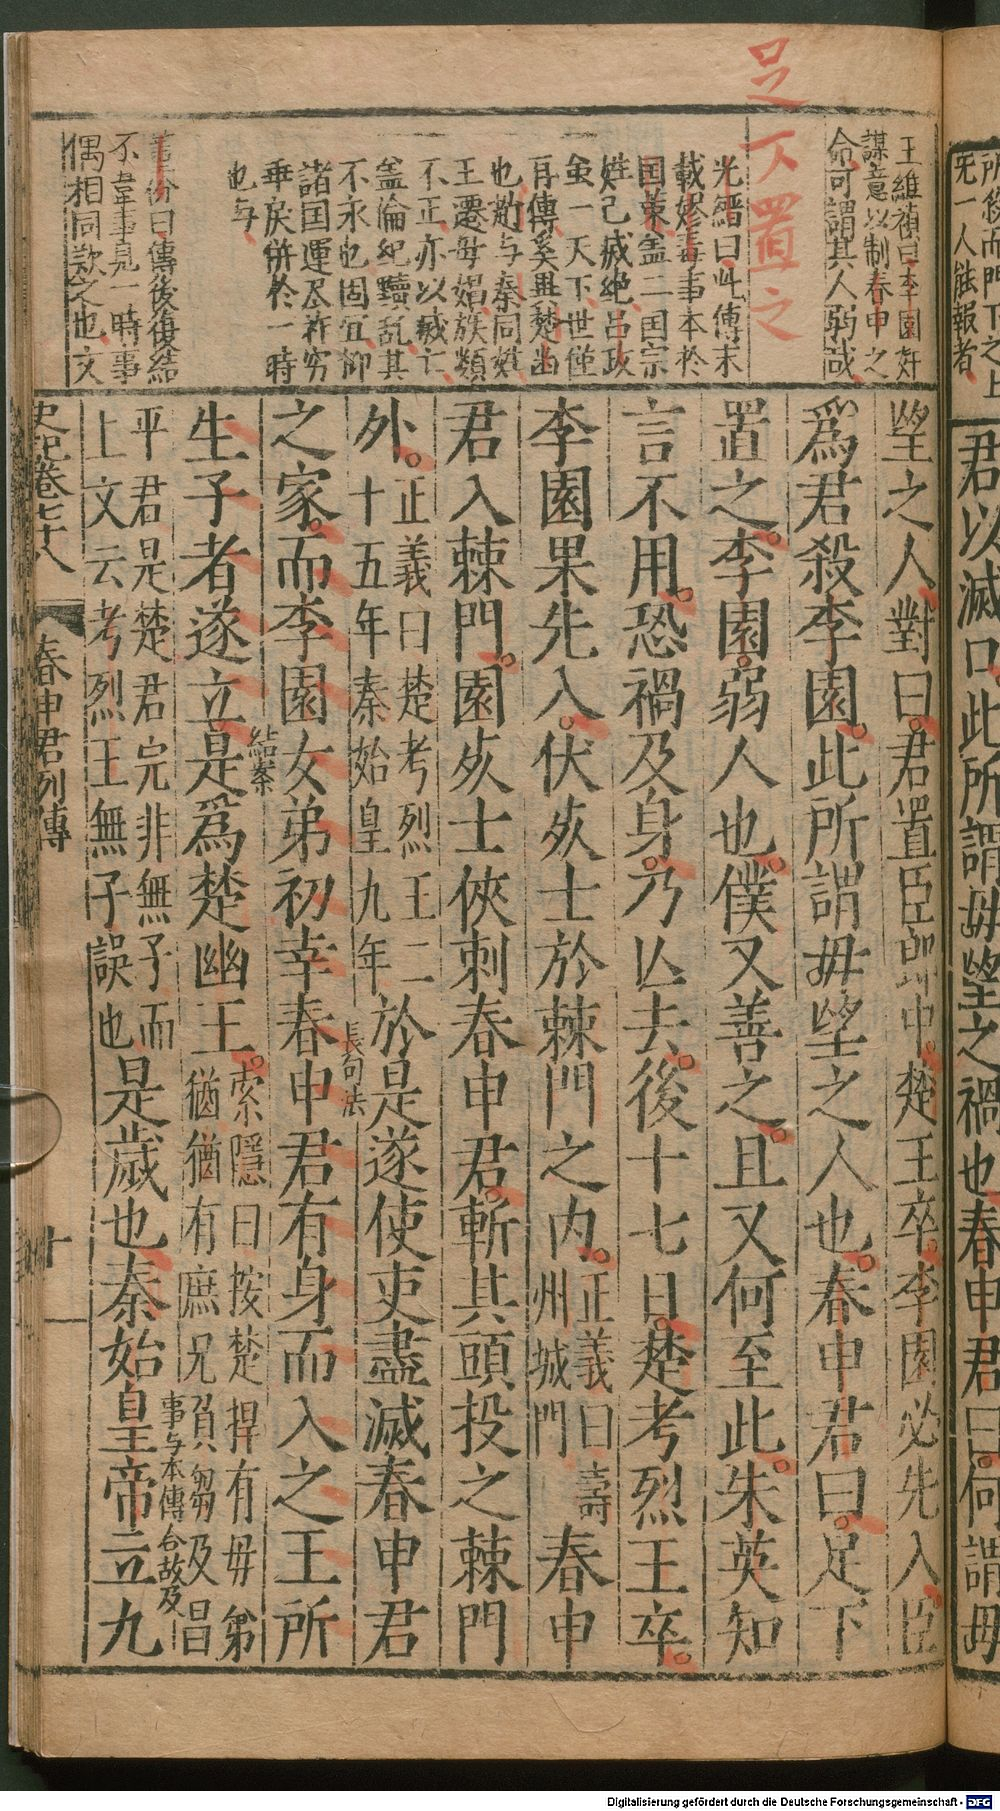 足下置之
王維禎曰李園奸
謀意以制春申之
命可謂其人弱哉
光縉曰此傳末
載嫪毐事本於
国策盖二国宗
姓已滅絶呂政
虽一天下世僅
再傳奚異楚幽
也尠与秦同姓
王遷母娼族類
不正亦以滅亡
盖倫紀黷乱其
不永也固宜抑
諸囯運尽祚穷
垂戾併於一時
也与
董份曰傳後復結
不韋事見一時事
偶相同歎之也文
望之人對曰君置臣郎中楚王卒李園必先入臣
爲君殺李園此所謂毋望之人也春申君曰足下
置之李園弱人也僕又善之且又何至此朱英知
言不用恐禍及身乃亾去後十七日楚考烈王卒
李園果先入伏死士於棘門之内正義曰壽州城門春申
君入棘門園死士俠刺春申君斬其頭投之棘門
外正義曰楚考烈王二十五年秦始皇九年於是遂使吏盡滅春申君
長句法
之家而李園女弟初幸春申君有身而入之王所
結案
生子者遂立是爲楚幽王索隱曰按楚捍有毋弟猶猶有庶兄負芻及昌
事与本傳合故及
平君是楚君完非無子而上文云考烈王無子誤也是歲也秦始皇帝立九
史記卷七十八
春申君列傳
十
所後而門下之上
旡一人能報者
君以滅口此所謂毋望之禍也春申君曰何謂毋
Digitalisierung gefördert durch die Deutsche Forschungsgemeinschaft - DFG